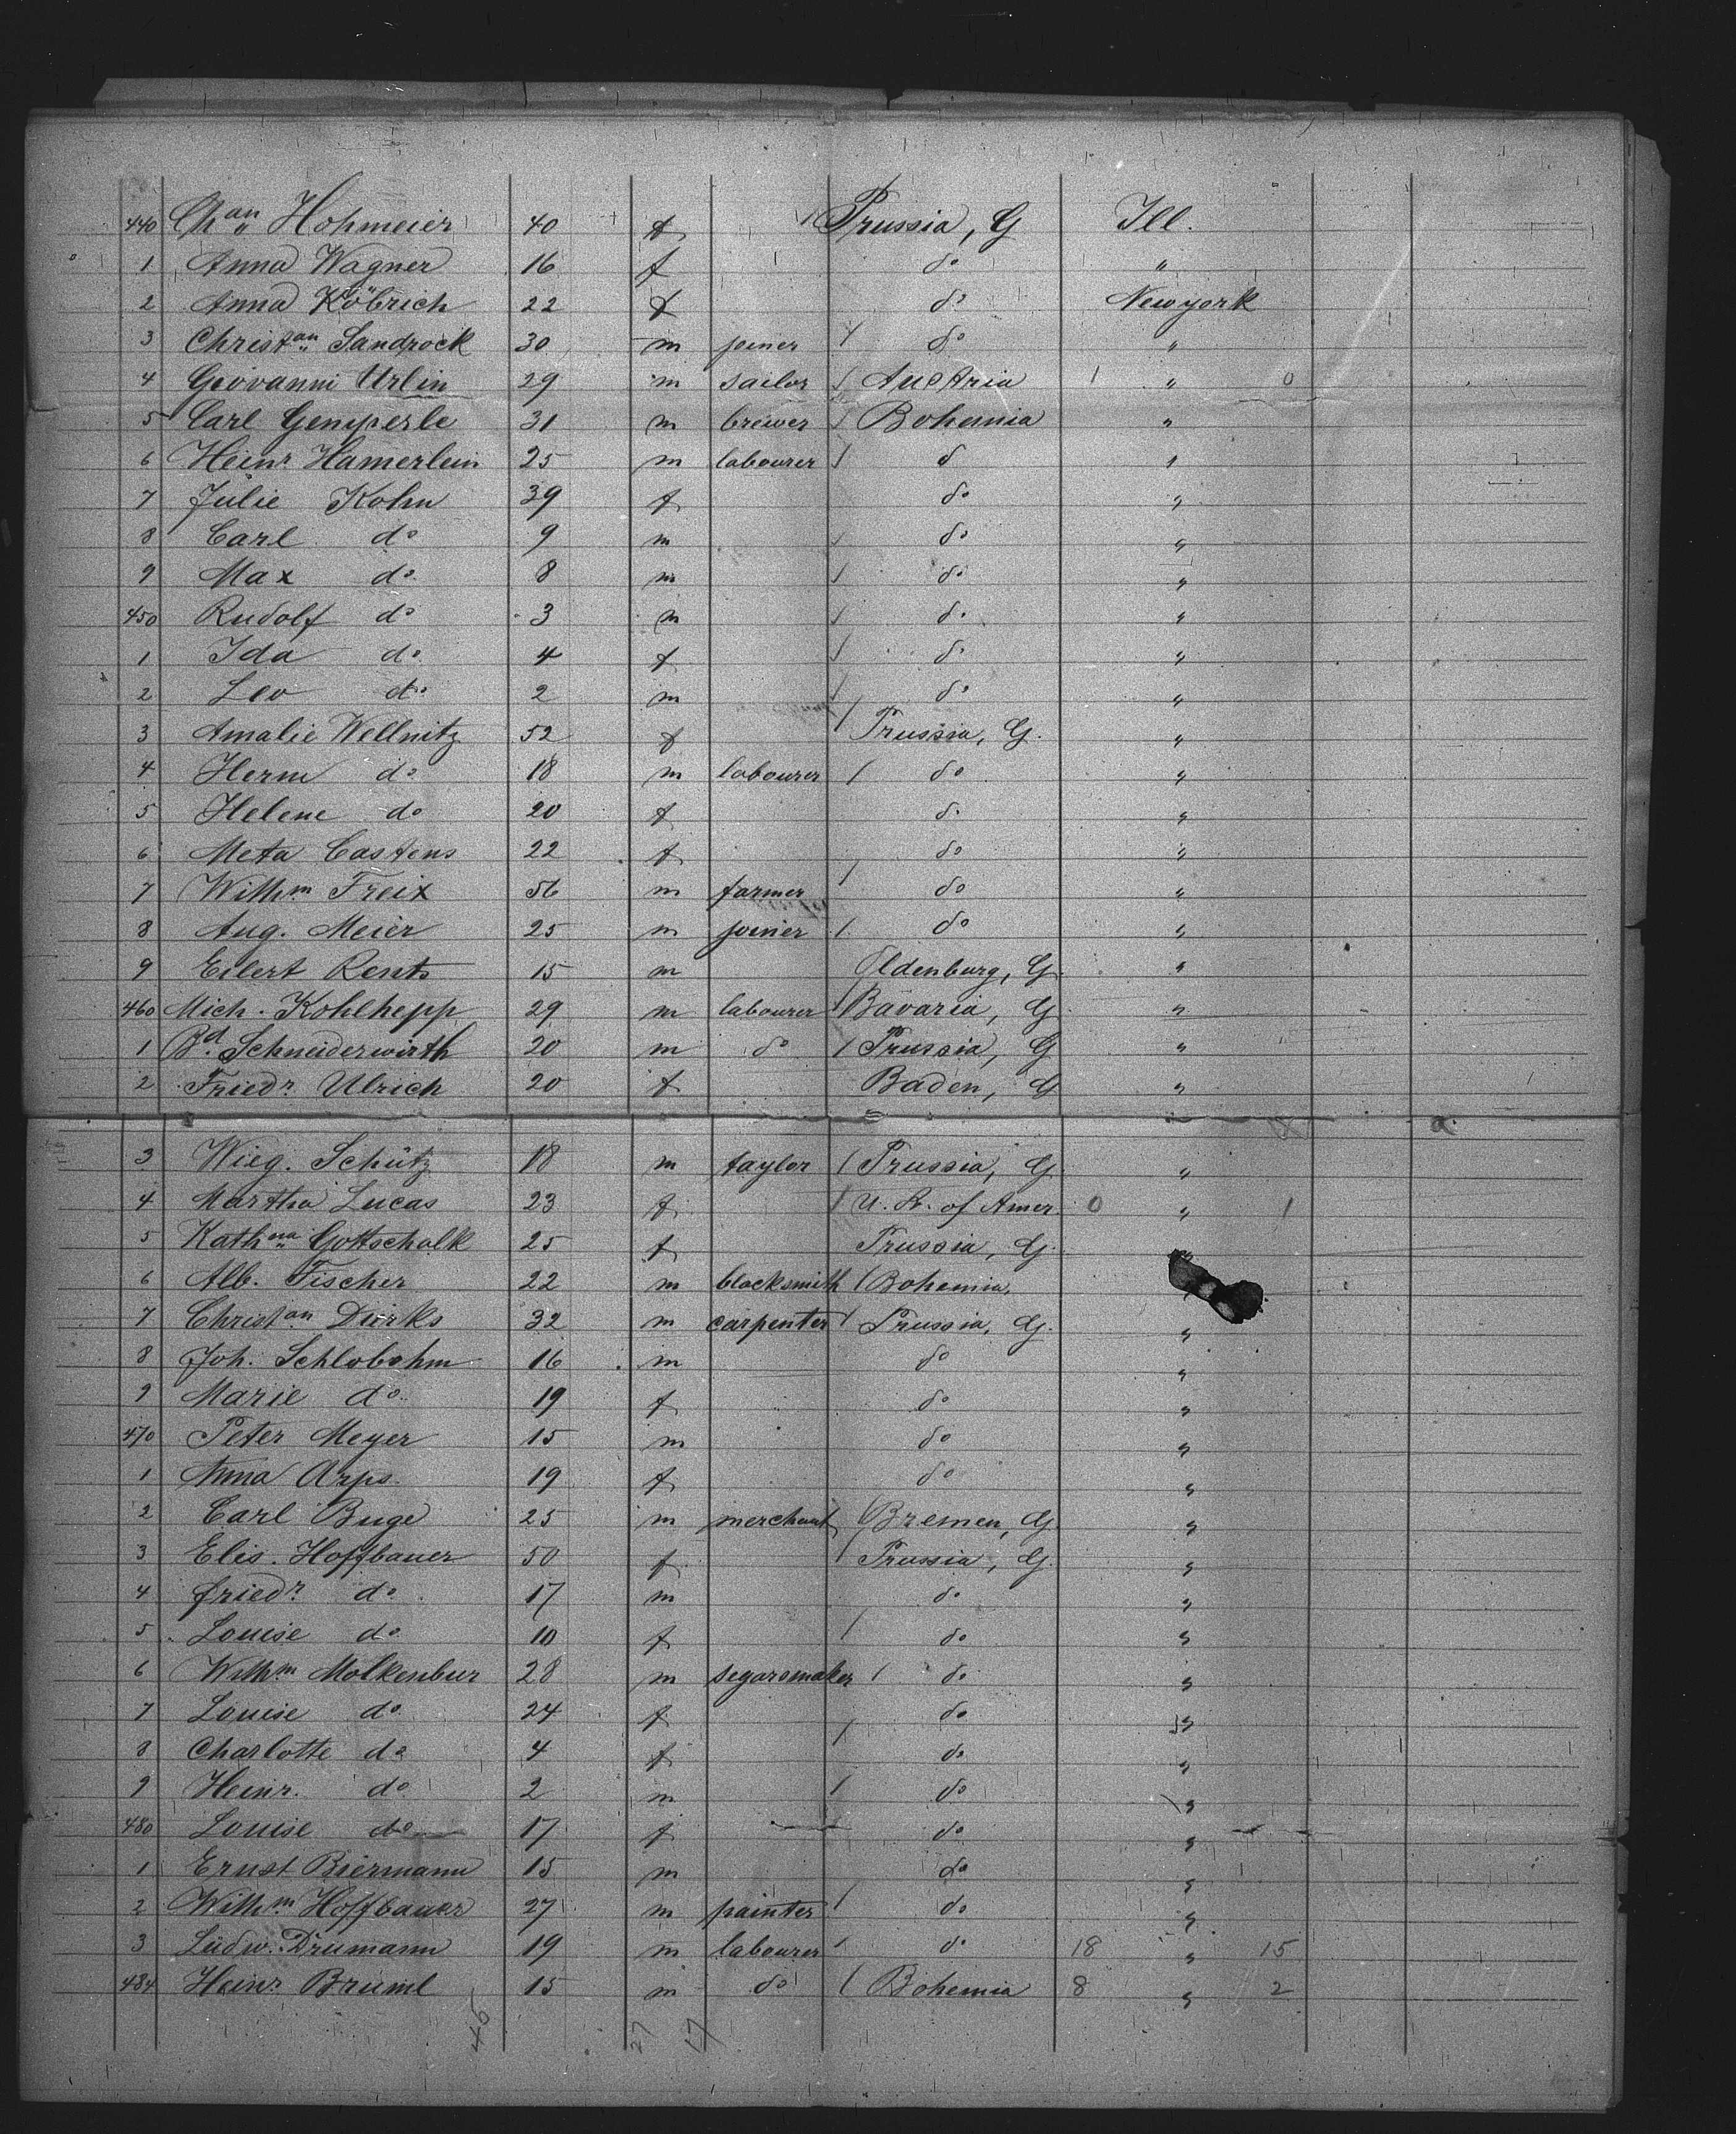 440 Chan Hohmeier 40 f Prussia, G Ill.
1 Anna Wagner 16 f do "
2 Anna Köbrich 22 f do Newyork
3 Christan Sandrock 30 m joiner do "
4 Giovanni Urlin 29 m sailor Austria 1 " 0
5 Carl Gemperle 31 m brewer Bohemia "
6 Heinr Hamerlein 25 m labourer do "
7 Julie Kohn 39 f do "
8 Carl do 9 m do "
9 Max do 8 m do "
450 Rudolf do 3 m do "
1 Ida do 4 f do "
2 Leo do 2 m do "
3 Amalie Wellnitz 52 f Prussia, G. "
4 Herm do 18 m labourer do "
5 Helene do 20 f do "
6 Meta Castens 22 f do "
7 Wilhm Freix 56 m farmer do "
8 Aug. Meier 25 m joiner do "
9 Eilert Rents 15 m Oldenburg, G. "
460 Mich. Kohlhepp 29 m labourer Bavaria, G "
1 Bd. Schneiderwirth 20 m do Prussia, G "
2 Friedr. Ulrich 20 f Baden, G "
3 Wieg. Schütz 18 m taylor Prussia, G "
4 Martha Lucas 23 f U. S. of Amer. 0 " 1
5 Kathna Gottschalk 25 f Prussia, G. "
6 Alb. Fischer 22 m blacksmith Bohemia, "
7 Christan Dürks 32 m carpenter Prussia, G. "
8 Joh. Schlobohm 16 m do "
9 Marie do 19 f do "
470 Peter Meyer 15 m do "
1 Anna Arps 19 f do "
2 Carl Buge 25 m merchant Bremen, G "
3 Elis. Hoffbauer 50 f Prussia, G. "
4 Friedr. do 17 m do "
5 Louise do 10 f do "
6 Wilhm Molkenbur 28 m segarsmaker do "
7 Louise do 24 f do "
8 Charlotte do 4 f do "
9 Heinr. do 2 m do "
480 Louise do 17 f do "
1 Ernst Biermann 15 m do "
2 Wilhm Hoffbauer 27 m painter do "
3 Ludw. Drumann 19 m labourer do 18 " 15
484 Heinr. Brüml 15 m do Bohemia 8 " 2
46 27 17